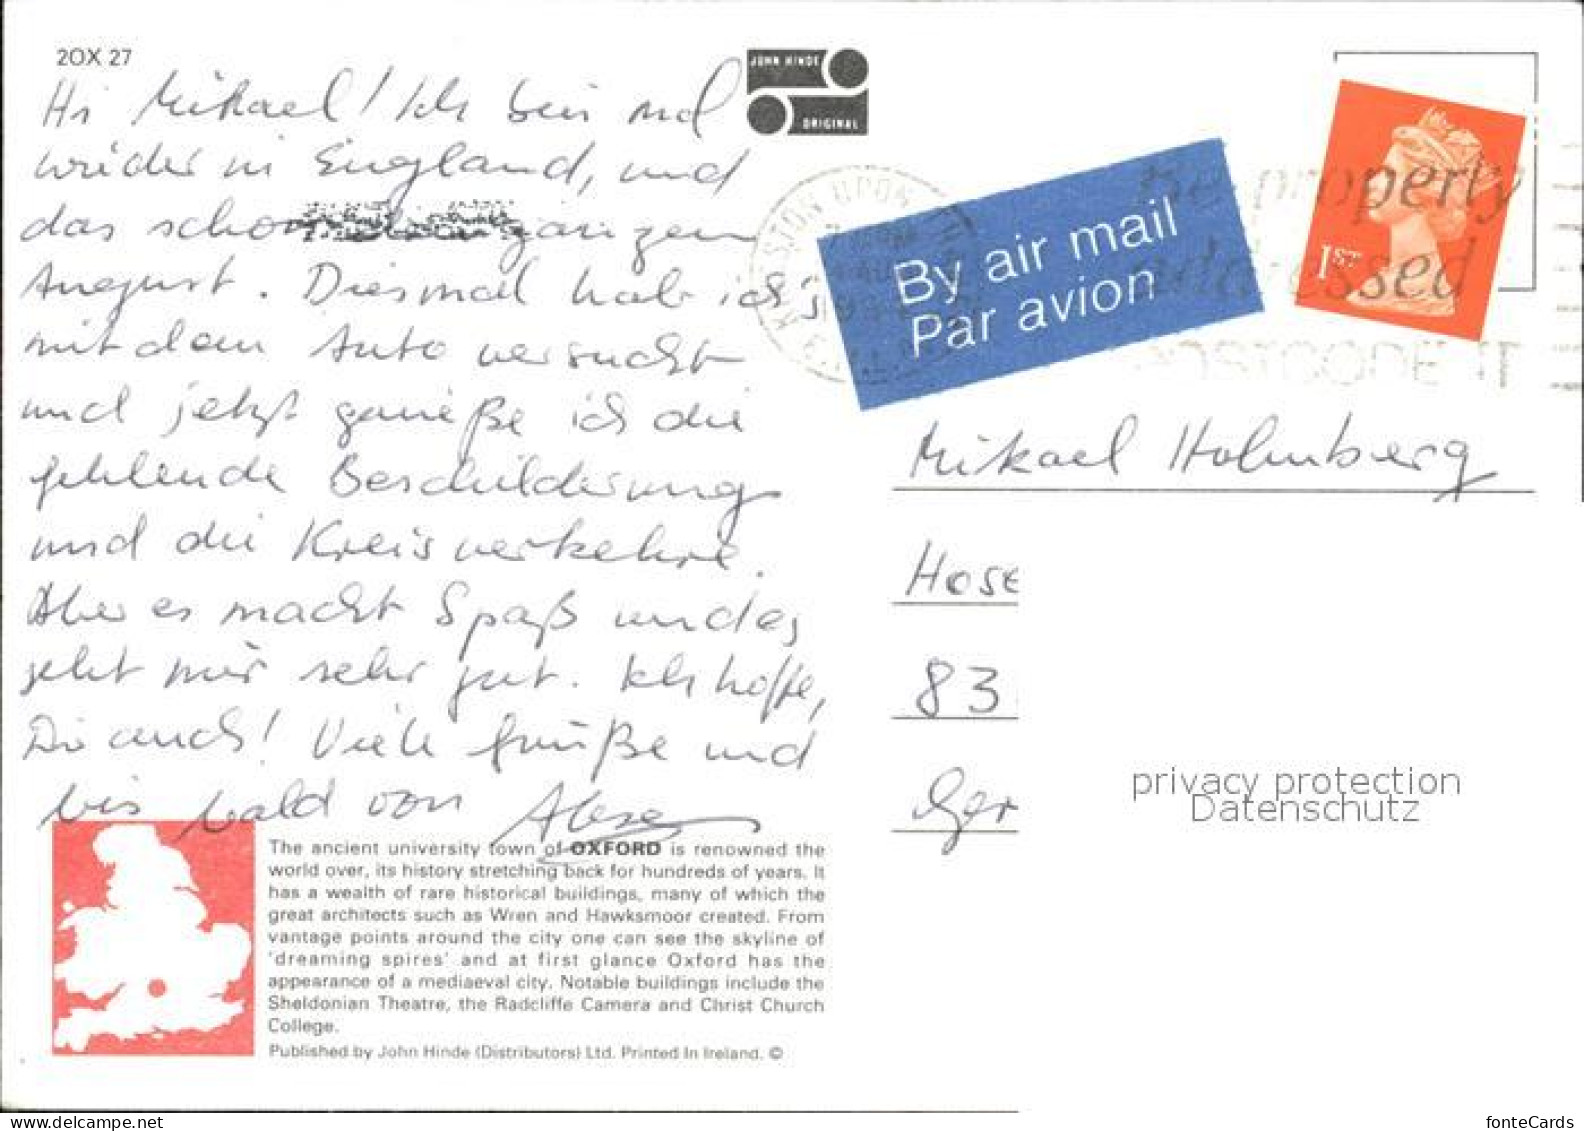 2OX 27
JOHN HINDE
ORIGINAL
Hi Mikael! Ich bin mal
wieder in England, und
das schon den ganzen
August. Diesmal hab ich's
mit dem Auto versucht
und jetzt genieße ich die
fehlende Beschilderung
und die Kreisverkehre.
Aber es macht Spaß und es
geht mir sehr gut. Ich hoffe,
Dir auch! Viele Grüße und
bis bald von
By air mail
Par avion
1ST
properly
addressed
POSTCODE IT
STON UPON
Mikael Holmberg
Hose
83
Ger
privacy protection
Datenschutz
The ancient university town of OXFORD is renowned the
world over, its history stretching back for hundreds of years. It
has a wealth of rare historical buildings, many of which the
great architects such as Wren and Hawksmoor created. From
vantage points around the city one can see the skyline of
'dreaming spires' and at first glance Oxford has the
appearance of a mediaeval city. Notable buildings include the
Sheldonian Theatre, the Radcliffe Camera and Christ Church
College.
Published by John Hinde (Distributors) Ltd. Printed In Ireland. ©
fonteCards